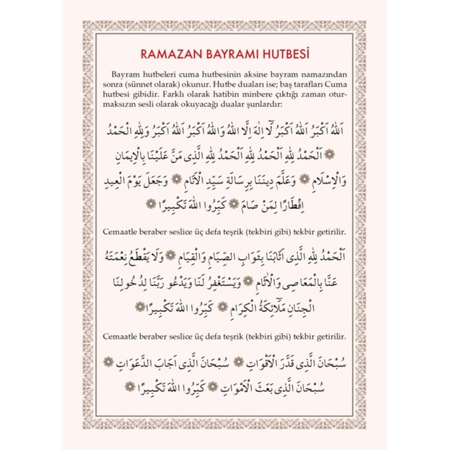 RAMAZAN BAYRAMI HUTBESİ
Bayram hutbeleri cuma hutbesinin aksine bayram namazından
sonra (sünnet olarak) okunur. Hutbe duaları ise; baş tarafları Cuma
hutbesi gibidir. Farklı olarak hatibin minbere çıktığı zaman otur-
maksızın sesli olarak okuyacağı dualar şunlardır:
اَللهُ اَكْبَرُ اَللهُ اَكْبَرُ لَٓا اِلٰهَ اِلَّا اللهُ وَاللهُ اَكْبَرُ اَللهُ اَكْبَرُ وَلِلّٰهِ الْحَمْدُ
۞ اَلْحَمْدُ لِلّٰهِ اَلْحَمْدُ لِلّٰهِ اَلْحَمْدُ لِلّٰهِ الَّذِى مَنَّ عَلَيْنَا بِالْاِيمَانِ
وَالْاِسْلَامِ ۞ وَعَلَّمَ دِينَنَا بِرِسَالَةِ سَيِّدِ الْاَنَامِ ۞ وَجَعَلَ يَوْمَ الْعِيدِ
اِفْطَارًا لِمَنْ صَامَ ۞ كَبِّرُوا اللهَ تَكْبِيرًا ۞
Cemaatle beraber seslice üç defa teşrik (tekbiri gibi) tekbir getirilir.
اَلْحَمْدُ لِلّٰهِ الَّذِى اَثَابَنَا بِثَوَابِ الصِّيَامِ وَالْقِيَامِ ۞ وَلَا يَقْطَعُ نِعْمَتَهُ
عَنَّا بِالْمَعَاصِى وَالْاٰثَامِ ۞ وَيَسْتَغْفِرُ لَنَا وَيَدْعُو رَبَّنَا لِدُخُولِنَا
الْجِنَانِ مَلَٓائِكَةُ الْكِرَامِ ۞ كَبِّرُوا اللهَ تَكْبِيرًا ۞
Cemaatle beraber seslice üç defa teşrik (tekbiri gibi) tekbir getirilir.
سُبْحَانَ الَّذِى قَدَّرَ الْاَقْوَاتِ ۞ سُبْحَانَ الَّذِى اَجَابَ الدَّعَوَاتِ ۞
سُبْحَانَ الَّذِى بَعَثَ الْاَمْوَاتِ ۞ كَبِّرُوا اللهَ تَكْبِيرًا ۞